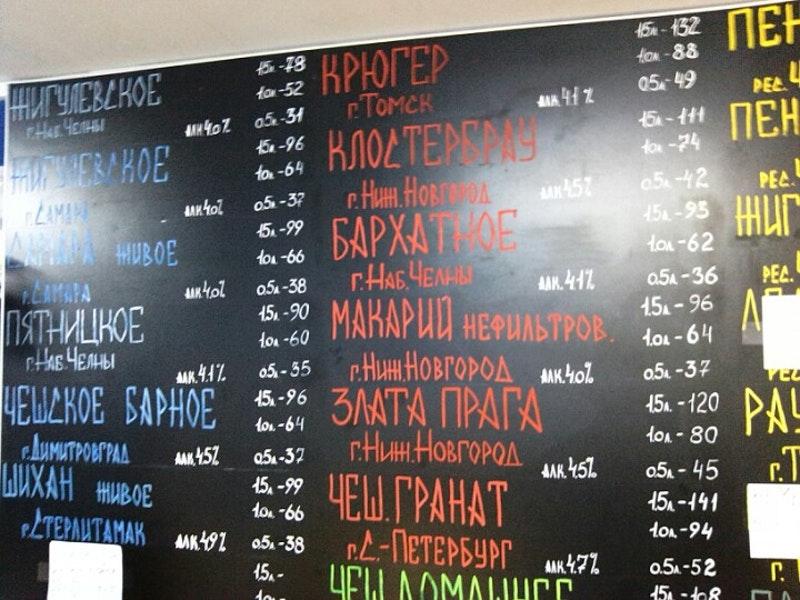 ЖИГУЛЕВСКОЕ 1.5л-78
1.0л-52
г.НАБ.ЧЕЛНЫ АЛК.4.0% 0.5л-31
ЖИГУЛЕВСКОЕ 1.5л-96
1.0л-64
г.САМАРА АЛК.4.0% 0.5л-37
САМАРА ЖИВОЕ 1.5л-99
1.0л-66
г.САМАРА АЛК.4.0% 0.5л-38
ПЯТНИЦКОЕ 1.5л-90
1.0л-60
г.НАБ.ЧЕЛНЫ АЛК.4.1% 0.5л-35
ЧЕШСКОЕ БАРНОЕ 1.5л-96
1.0л-64
г.ДИМИТРОВГРАД АЛК.4.5% 0.5л-37
ШИХАН ЖИВОЕ 1.5л-99
1.0л-66
г.СТЕРЛИТАМАК АЛК.4.9% 0.5л-38
1.5л-
КРЮГЕР 1.5л-132
1.0л-88
г.ТОМСК АЛК.4.1% 0.5л-49
КЛОСТЕРБРАУ 1.5л-111
1.0л-74
г.НИЖ.НОВГОРОД АЛК.4.5% 0.5л-42
БАРХАТНОЕ 1.5л-93
1.0л-62
г.НАБ.ЧЕЛНЫ АЛК.4.1% 0.5л-36
МАКАРИЙ НЕФИЛЬТРОВ. 1.5л-96
1.0л-64
г.НИЖ.НОВГОРОД АЛК.4.0% 0.5л-37
ЗЛАТА ПРАГА 1.5л-120
1.0л-80
г.НИЖ.НОВГОРОД АЛК.4.5% 0.5л-45
ЧЕШ.ГРАНАТ 1.5л-141
1.0л-94
г.С.-ПЕТЕРБУРГ АЛК.4.7% 0.5л-52
ЧЕШ.ДОМАШНЕЕ 1.5л-108
ПЕН
РЕС.
ПЕН
РЕС.
ЖИГ
РЕС.
РАУ
г.Т